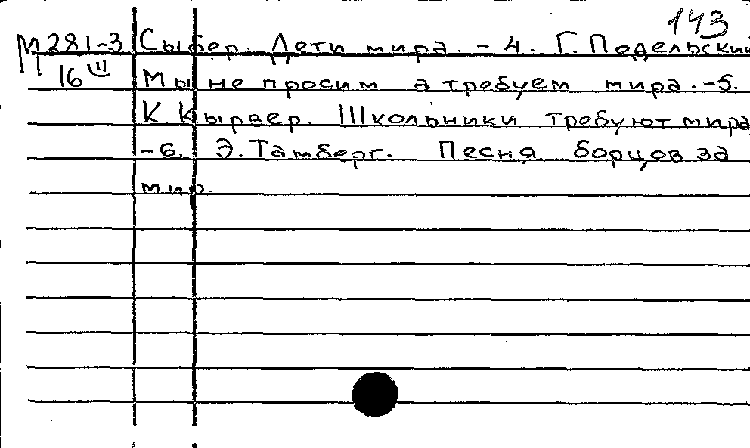 143
М 281-3 Сыбер. Дети мира. - 4. Г. Подельский
16 III Мы не просим а требуем мира. -5.
К Кырвер. Школьники требуют мира
-6. Э. Тамберг. Песня борцов за
мир.